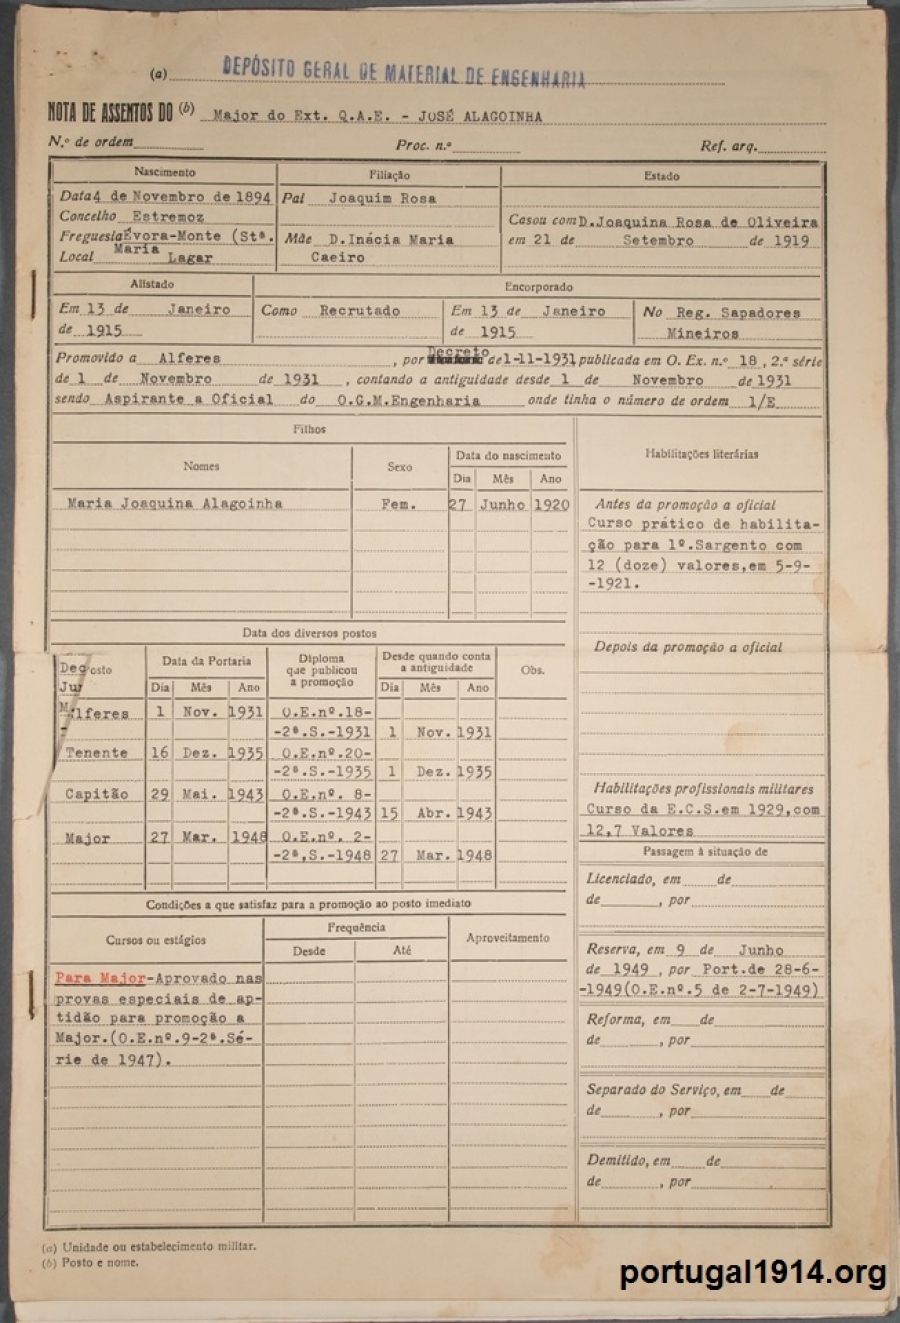 (a) DEPÓSITO GERAL DE MATERIAL DE ENGENHARIA
NOTA DE ASSENTOS DO (b) Major do Ext. Q.A.E. - JOSÉ ALAGOINHA
N.º de ordem Proc. n.º Ref. arq.
Nascimento
Data 4 de Novembro de 1894
Concelho Estremoz
Freguesia Évora-Monte (Stª.
Maria
Local Lagar
Filiação
Pai Joaquim Rosa
Mãe D.Inácia Maria
Caeiro
Estado
Casou com D.Joaquina Rosa de Oliveira
em 21 de Setembro de 1919
Alistado
Em 13 de Janeiro
de 1915
Encorporado
Como Recrutado
Em 13 de Janeiro
de 1915
No Reg. Sapadores
Mineiros
Promovido a Alferes , por Decreto de 1-11-1931 publicada em O. Ex. n.º 18 , 2.ª série
de 1 de Novembro de 1931 , contando a antiguidade desde 1 de Novembro de 1931
sendo Aspirante a Oficial do O.G.M.Engenharia onde tinha o número de ordem 1/E
Filhos
Nomes Sexo Data do nascimento
Dia Mês Ano
Maria Joaquina Alagoinha Fem. 27 Junho 1920
Habilitações literárias
Antes da promoção a oficial
Curso prático de habilita-
ção para 1º.Sargento com
12 (doze) valores,em 5-9-
-1921.
Depois da promoção a oficial
Habilitações profissionais militares
Curso da E.C.S.em 1929,com
12,7 Valores
Data dos diversos postos
Dec
Jur
M
osto
Data da Portaria
Diploma
que publicou
a promoção
Desde quando conta
a antiguidade
Obs.
Dia Mês Ano Dia Mês Ano
Alferes 1 Nov. 1931 O.E.nº.18-
-2ª.S.-1931 1 Nov. 1931
Tenente 16 Dez. 1935 O.E.nº.20-
-2ª.S.-1935 1 Dez. 1935
Capitão 29 Mai. 1943 O.E.nº. 8-
-2ª.S.-1943 15 Abr. 1943
Major 27 Mar. 1948 O.E.nº. 2-
-2ª,S.-1948 27 Mar. 1948
Condições a que satisfaz para a promoção ao posto imediato
Cursos ou estágios
Frequência
Desde Até
Aproveitamento
Para Major-Aprovado nas
provas especiais de ap-
tidão para promoção a
Major.(O.E.nº.9-2ª.Sé-
rie de 1947).
Passagem à situação de
Licenciado, em de
de , por
Reserva, em 9 de Junho
de 1949 , por Port.de 28-6-
-1949(O.E.nº.5 de 2-7-1949)
Reforma, em de
de , por
Separado do Serviço, em de
de , por
Demitido, em de
de , por
(a) Unidade ou estabelecimento militar.
(b) Posto e nome.
portugal1914.org